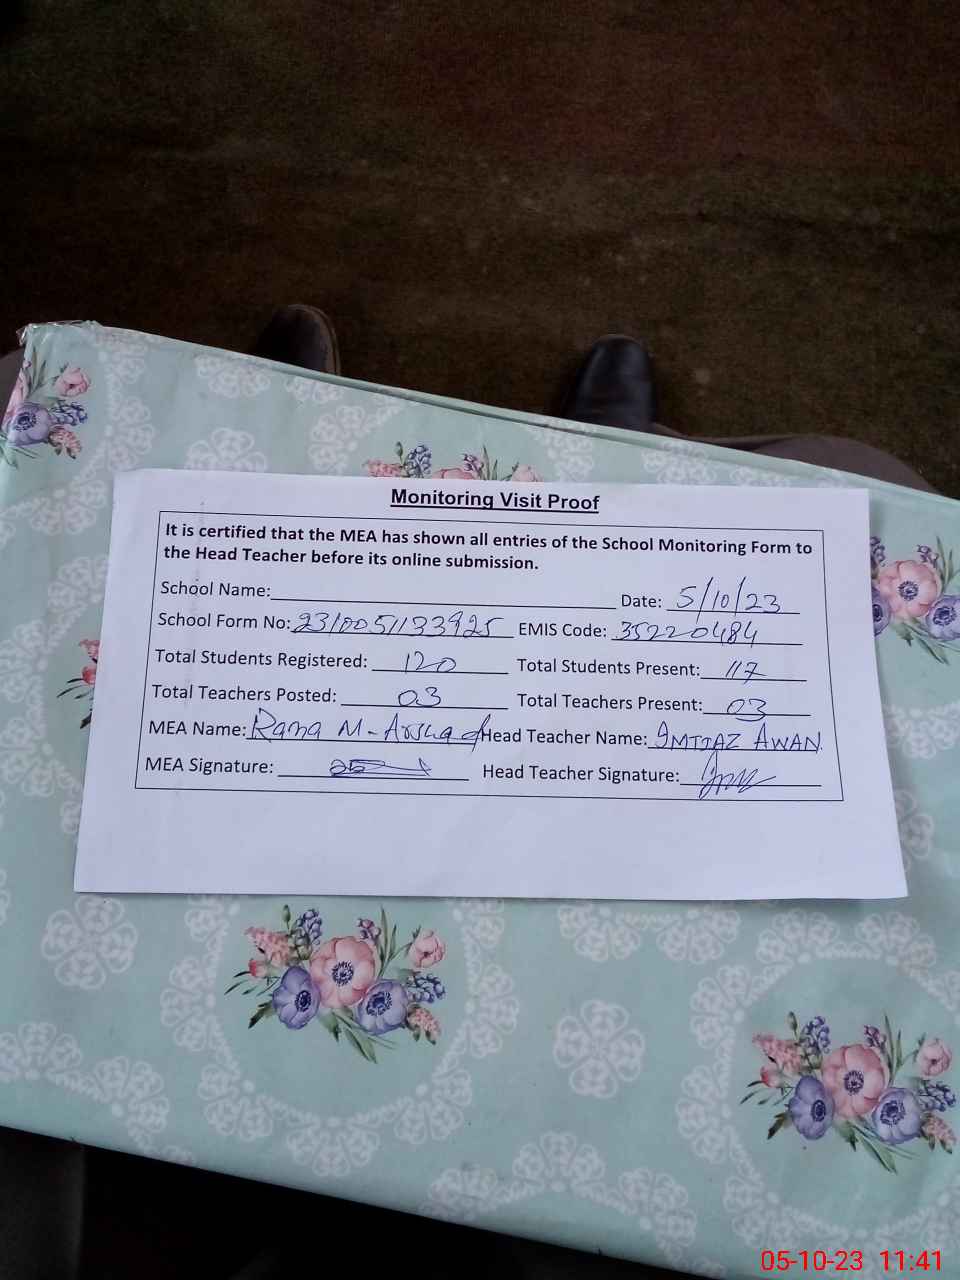 Monitoring Visit Proof
It is certified that the MEA has shown all entries of the School Monitoring Form to
the Head Teacher before its online submission.
School Name: Date: 5/10/23
School Form No: 2310051133925 EMIS Code: 35220484
Total Students Registered: 120 Total Students Present: 117
Total Teachers Posted: 03 Total Teachers Present: 03
MEA Name: Rana M-Arshad Head Teacher Name: IMTIAZ AWAN.
MEA Signature: Head Teacher Signature:
05-10-23 11:41